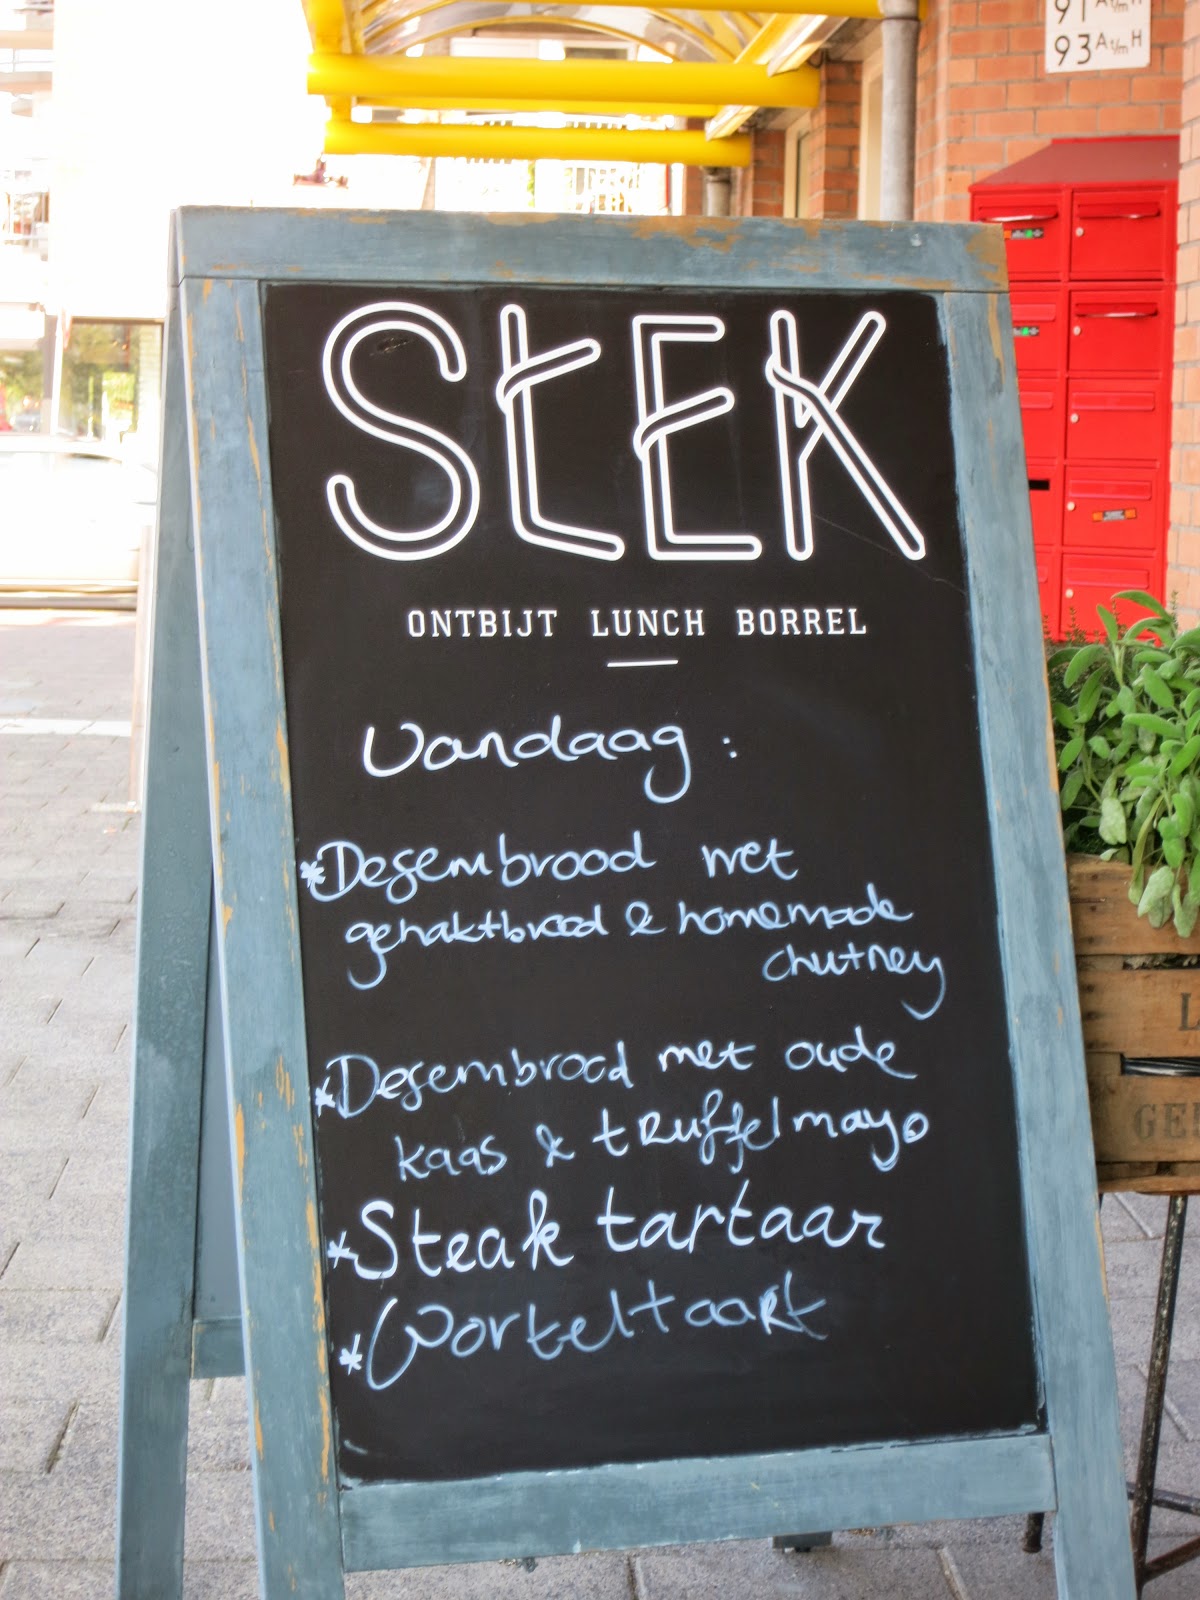 91 A t/m H
93 A t/m H
StEK
ONTBIJT LUNCH BORREL
Vandaag :
*Desembrood met
gehaktbrood & homemade
chutney
*Desembrood met oude
kaas & truffelmayo
*Steak tartaar
*Worteltaart